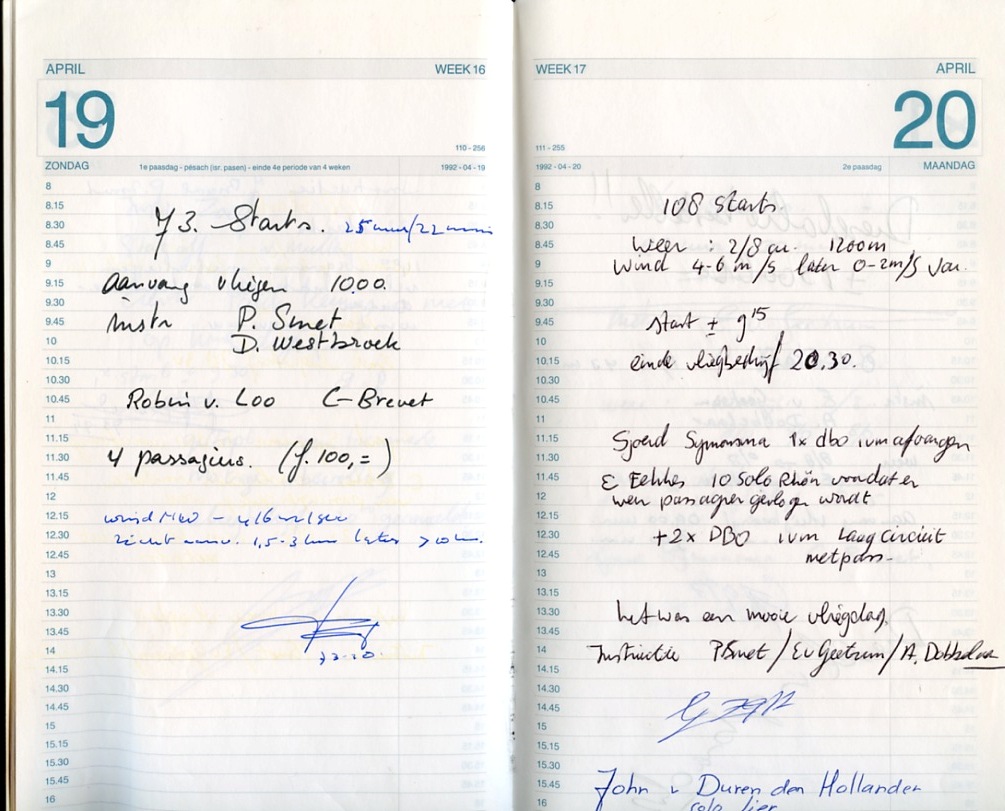 APRIL
WEEK 16
19
110 - 256
ZONDAG
1e paasdag - pésach (isr. pasen) - einde 4e periode van 4 weken
1992 - 04 - 19
8
8.15
8.30
8.45
9
9.15
9.30
9.45
10
10.15
10.30
10.45
11
11.15
11.30
11.45
12
12.15
12.30
12.45
13
13.15
13.30
13.45
14
14.15
14.30
14.45
15
15.15
15.30
15.45
16
73. Starts.
aanvang vliegen 10.00.
instr P. Smet
D. Westbroek
Robin v. Loo C-Brevet
4 passagiers. (f. 100,=)
wind - 4/6 m/sec
zicht aanv. 1,5-3 km later > 10 km.
WEEK 17
APRIL
20
111 - 255
1992 - 04 - 20
2e paasdag
MAANDAG
8
8.15
8.30
8.45
9
9.15
9.30
9.45
10
10.15
10.30
10.45
11
11.15
11.30
11.45
12
12.15
12.30
12.45
13
13.15
13.30
13.45
14
14.15
14.30
14.45
15
15.15
15.30
15.45
16
108 starts
weer : 2/8 cu. 1200m
wind 4-6 m/s later 0-2m/s var.
start ± 9 15
einde vliegbedrijf 20.30.
Sjoerd 1x dbo ivm afvangen
10 Solo Rhön voordat er
weer passagier gevlogen wordt
+2x DBO ivm laag circuit
met pass.
het was een mooie vliegdag.
Instructie P Smet / / A. Dobbelaar
John v Duren den Hollander
solo lier